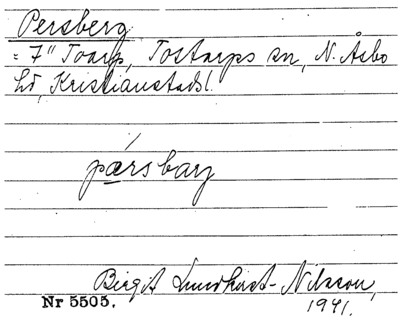 Persberg
= 7" Toarp, Tostarps sn, N. Åsbo
hd, Kristianstads l.
pærsbarj
Birgit Lundkvist-Nilsson,
Nr 5505.
1941.